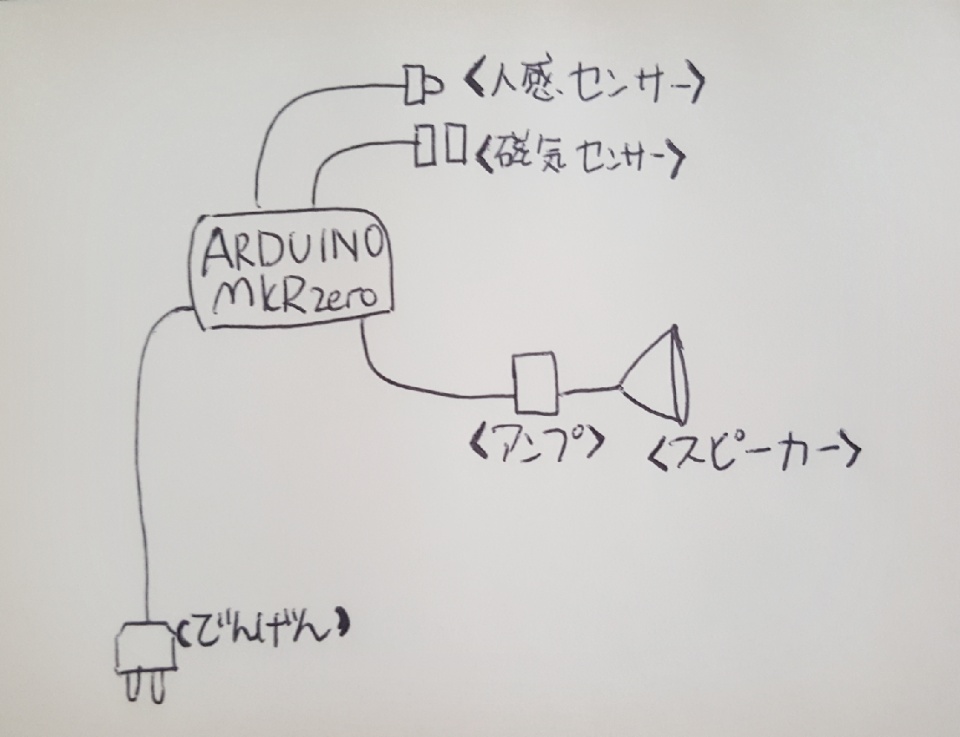 <人感センサー>
<磁気センサー>
ARDUINO
MKRzero
<アンプ>
<スピーカー>
(でんげん)